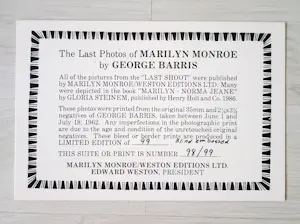 The Last Photos of MARILYN MONROE
by GEORGE BARRIS
All of the pictures from the "LAST SHOOT" were published
by MARILYN MONROE/WESTON EDITIONS LTD. Many
were depicted in the book "MARILYN - NORMA JEANE"
by GLORIA STEINEM, published by Henry Holt and Co. 1986.
These photos were printed from the original 35mm and 2¼x2¼
negatives of GEORGE BARRIS, taken between June 1 and
July 18, 1962. Any imperfections in the photographic prints
are due to the age and condition of the unretouched original
negatives. These bleed or border prints are produced in a
LIMITED EDITION of 99 Blind embossed
THIS SUITE OR PRINT IS NUMBER 98/99
MARILYN MONROE/WESTON EDITIONS LTD.
EDWARD WESTON, PRESIDENT